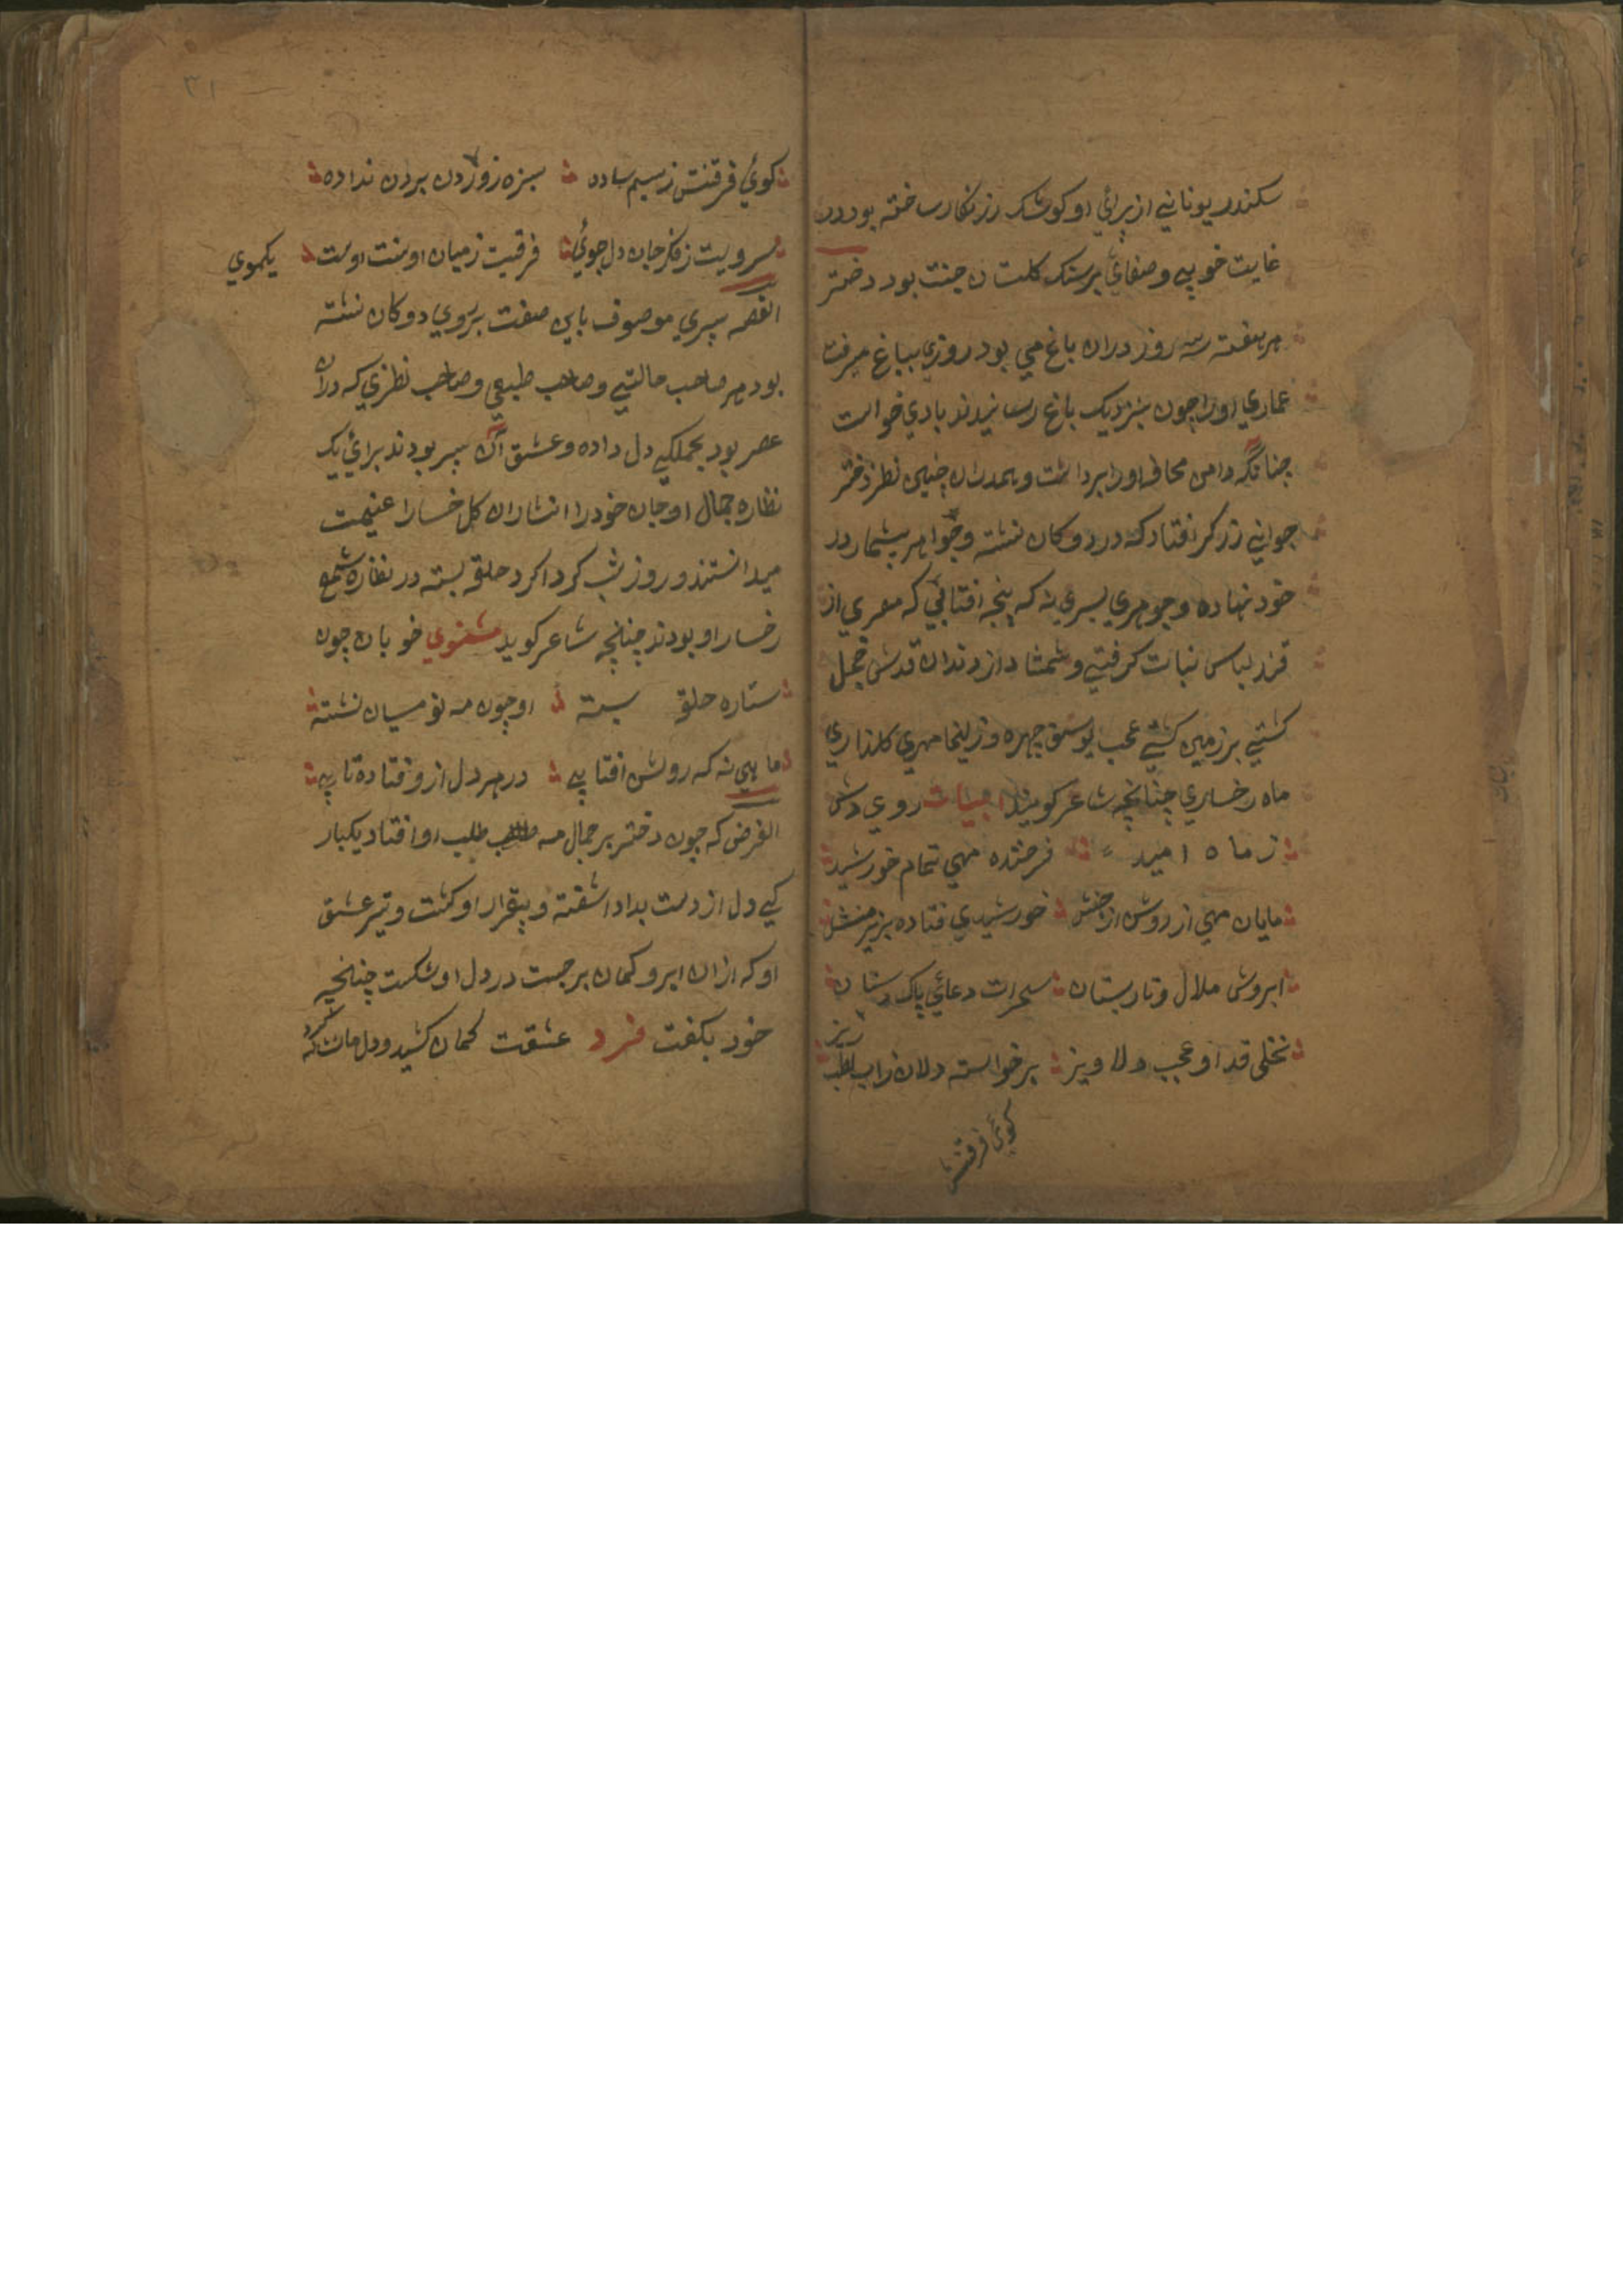 سکندر یونانی از برائی او کوشک زرنکار ساخته بود در
غایت خوبی و صفای برشک کلستان جنت بود دختر
هر هفته سه روز دران باغ می بود روزی بباغ میرفت
عماری اورا چون بنزدیک باغ رسانیدند بادی خواست
چنانکه دامن محافه اورا برداشت و همدران چنین نظر دختر
جوانی زرکر افتاد که در دوکان نشسته و جواهر بیشمار در
خود نهاده و جوهری پسری نه که پنجه افتابی که مصری از
قند لباس نبات کرفتی و شمشاد از دندان قدش خجل
کشتی بر زمین کشتی عجب یوسف چهره و زلیخا مهری کلعذاری
ماه رخساری چنانچه شاعر کوید ابیات روی وش
ز ماه امید فرخنده مهی تمام خورشید
مایان مهی از روش از جنبش خورشیدی فتاده بزیر منش
ابروش هلال و تار بستان سحرات دعائی پاک دستان
نخلی قد او عجب دلاویز برخواسته دلان ز اب لطب
ریز
کوئی فرقتش
۳۱
کوئی فرقتش ز سیم ساده سبزه ز و زدن بردن نداده
سرویت ز فکر جان دل جوئی فرقیت ز میان او منت اوست یکموی
القصه پسری موصوف باین صفت بروی دوکان نشسته
بود هر صاحب حالتی و صاحب طبعی و صاحب نظری که دران
عصر بود بجملکی دل داده و عشق آن پسر بودند برائی یک
نظاره جمال او جان خود را انشاران کل خسارا غنیمت
میدانستند و روز شب کرداکرد حلقه بسته در نظاره شمع
رخسار او بودند چنانچه شاعر کوید مثنوی خوبان چون
ستاره حلقه بسته او چون مه نو میان نشسته
ماهی نه که رویش افتابی در هر دل ازو فتاده تابی
الغرض که چون دختر بر جمال مه طلب او افتاد یکبار
کی دل از دست بداد اشفته و بیقرار او کشت و تیر عشق
او که ازان ابرو کمان برجست در دل او شکست چنانچه
خود بکفت فرد عشقت کمان کشید و دل مان که
کرد